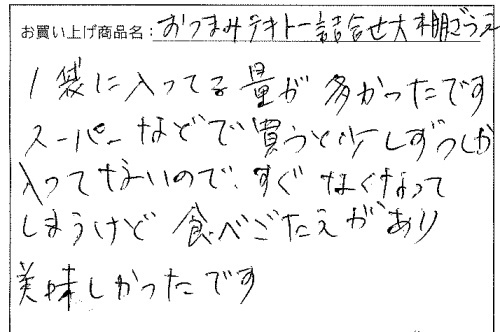 お買い上げ商品名：おつまみテキトー詰合せ大棚ざらえ
1袋に入ってる量が多かったです
スーパーなどで買うと少しずつしか
入ってないので、すぐなくなって
しまうけど食べごたえがあり
美味しかったです